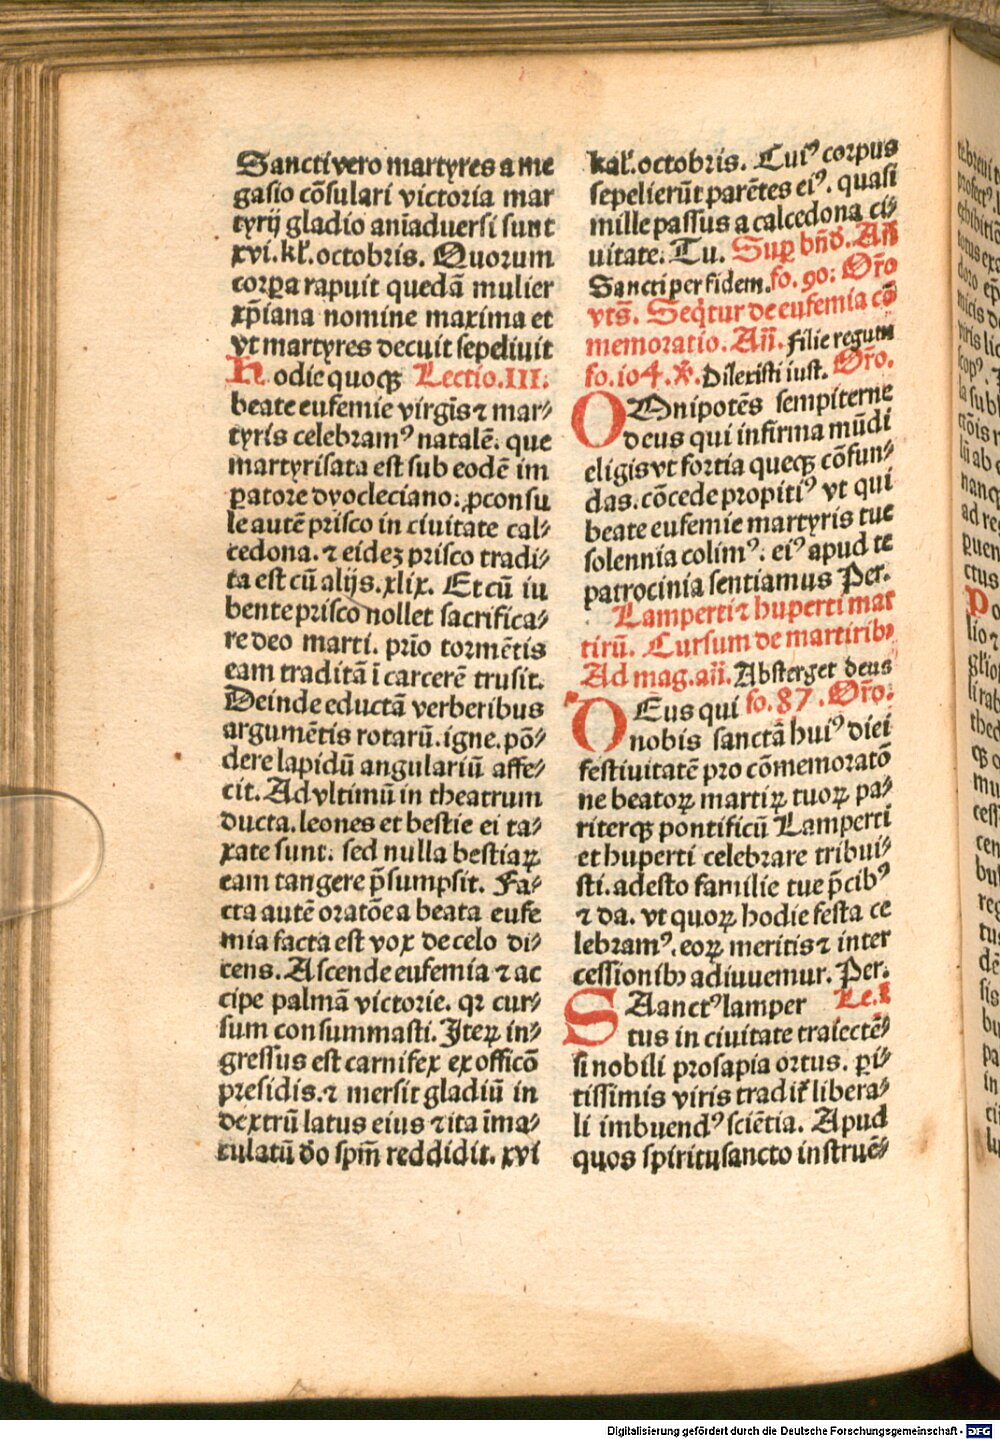 Sancti vero martyres a me
gasio cōsulari victoria mar
tyrij gladio aniaduersi sunt
xvi. kł. octobris. Quorum
corpꝛa rapuit quedā mulier
xp̄iana nomine maxima et
vt martyres decuit sepeliuit
Hodie quoqꝫ Lectio.III.
beate eufemie virgīs ⁊ mar⸗
tyris celebramꝰ natalē. que
martyrisata est sub eodē im
ꝑatore dyocleciano. ꝓconsu
le autē prisco in ciuitate cal⸗
cedona. ⁊ eidez prisco tradi⸗
ta est cū alijs .xlix. Et cū iu
bente prisco nollet sacrifica⸗
re deo marti. prīo tormētis
eam traditā ī carcerē trusit.
Deinde eductā verberibus
argumētis rotarū. igne. pō⸗
dere lapidū angulariū affe⸗
cit. Ad vltimū in theatrum
ducta. leones et bestie ei ta⸗
xate sunt. sed nulla bestiaꝝ
eam tangere p̄sumpsit. Fa⸗
cta autē oratōe a beata eufe
mia facta est vox de celo di⸗
cens. Ascende eufemia ⁊ ac
cipe palmā victorie. qꝛ cur⸗
sum consummasti. Iteꝝ in⸗
gressus est carnifex ex officō
presidis. ⁊ mersit gladiū in
dextrū latus eius ⁊ ita īma⸗
culatū d̄o spm̄ reddidit. xvi
kał. octobris. Cuiꝰ corpus
sepelierūt parētes eiꝰ. quasi
mille passus a calcedona ci⸗
uitate. Tu. Suꝑ bn̄d̄. Añ
Sancti per fidem. fo. 90: Or̄o
vts̄. Seq̇tur de eufemia cō
memoratio. Añ. Filie regum
fo. 104. ꝟ. Dilexisti iust. Or̄o.
OMnipotēs sempiterne
deus qui infirma mūdi
eligis vt fortia queqꝫ cōfun⸗
das. cōcede propitiꝰ vt qui
beate eufemie martyris tue
solennia colimꝰ. eiꝰ apud te
patrocinia sentiamus Per.
Lamperti ⁊ huperti mar
tirū. Cursum de martiribꝫ
Ad mag. añ. Absterget deus
DEus qui fo. 87. Or̄o.
nobis sanctā huiꝰ diei
festiuitatē pro cōmemoratō
ne beatoꝝ martiꝝ tuoꝝ pa⸗
riterqꝫ pontificū Lamperti
et huperti celebrare tribui⸗
sti. adesto familie tue p̄cibꝰ
⁊ da. vt quoꝝ hodie festa ce
lebramꝰ. eoꝝ meritis ⁊ inter
cessionibꝫ adiuuemur. Per.
SAanctꝰ lamper Le. I
tus in ciuitate traiectē⸗
si nobili prosapia ortus. ꝑi⸗
tissimis viris tradiť libera⸗
li imbuendꝰ sciētia. Apud
quos spiritusancto instruē⸗
Digitalisierung gefördert durch die Deutsche Forschungsgemeinschaft - DFG